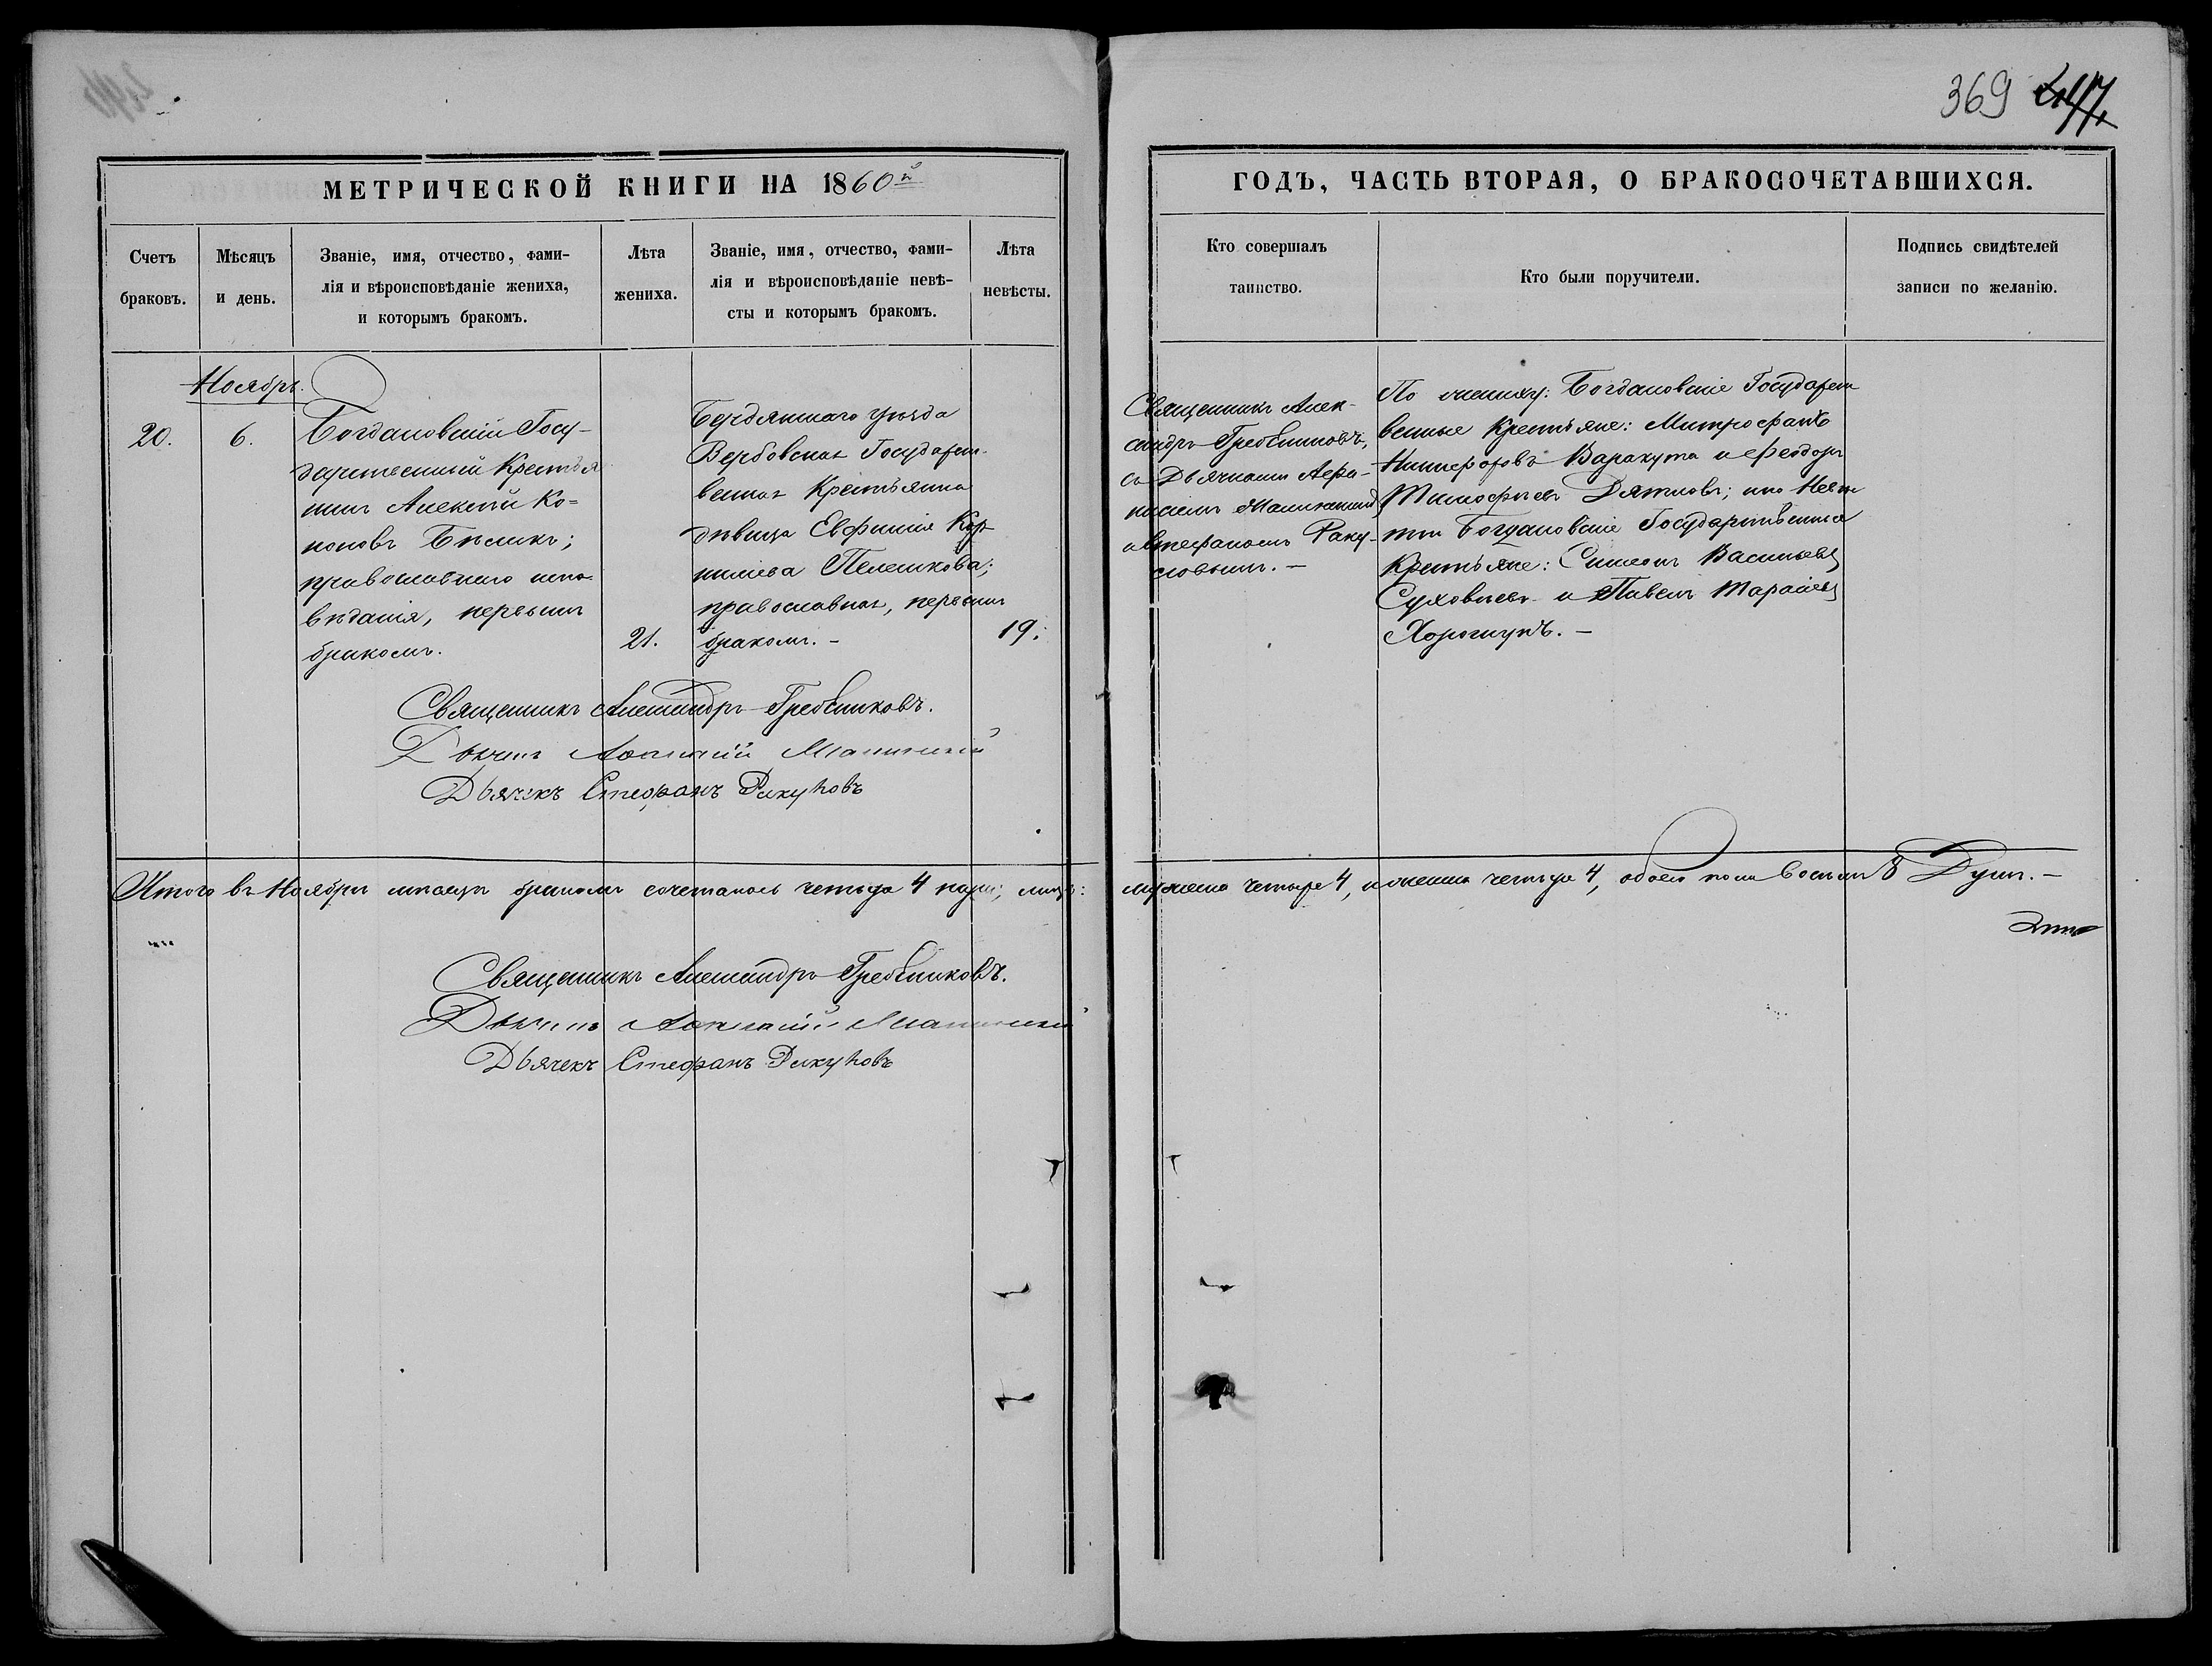 369 247.
МЕТРИЧЕСКОЙ КНИГИ НА 1860й
ГОДЪ, ЧАСТЬ ВТОРАЯ, О БРАКОСОЧЕТАВШИХСЯ.
Счетъ
браковъ.
Мѣсяцъ
и день.
Званіе, имя, отчество, фами-
лія и вѣроисповѣданіе жениха,
и которымъ бракомъ.
Лѣта
жениха.
Званіе, имя, отчество, фами-
лія и вѣроисповѣданіе невѣ-
сты и которымъ бракомъ.
Лѣта
невѣсты.
Кто совершалъ
таинство.
Кто были поручители.
Подпись свидѣтелей
записи по желанію.
Ноябрь.
20.
6.
Богдановскій Госу-
дарственный Крестья
нинъ Алексѣй Ко=
ноновъ Бѣликъ;
православнаго испо-
вѣданія, первымъ
бракомъ.
21.
Бердянскаго уѣзда
Вербовская Государст-
венная Крестьянка
дѣвица Евфимія Кор-
ниліева Пелешкова;
православная, первымъ
бракомъ. —
19.
Священникъ Алек-
сандръ Гребенниковъ,
съ Дьячками Афа-
насіемъ
и Стефаномъ Раку-
совымъ. —
По жениху: Богдановскіе Государст
венные Крестьяне: Митрофанъ
Никифоровъ Варакута и Феодоръ
Тимофѣевъ Дятловъ; по Невѣс-
тѣ Богдановскіе Государственные
Крестьяне: Симеонъ Васильевъ
Суховѣевъ и Павелъ Тарасіевъ
Хорошунъ. —
Священникъ Александръ Гребенниковъ.
Дьячекъ Афанасій
Дьячекъ Стефанъ Ракусовъ
Итого въ Ноябрѣ мѣсяцѣ бракомъ сочеталось четыре 4 пары; лицъ: мужеска четыре 4, и женска четыре 4, обоего пола восемь 8 Душъ. —
Священникъ Александръ Гребенниковъ.
Дьячекъ Афанасій
Дьячекъ Стефанъ Ракусовъ